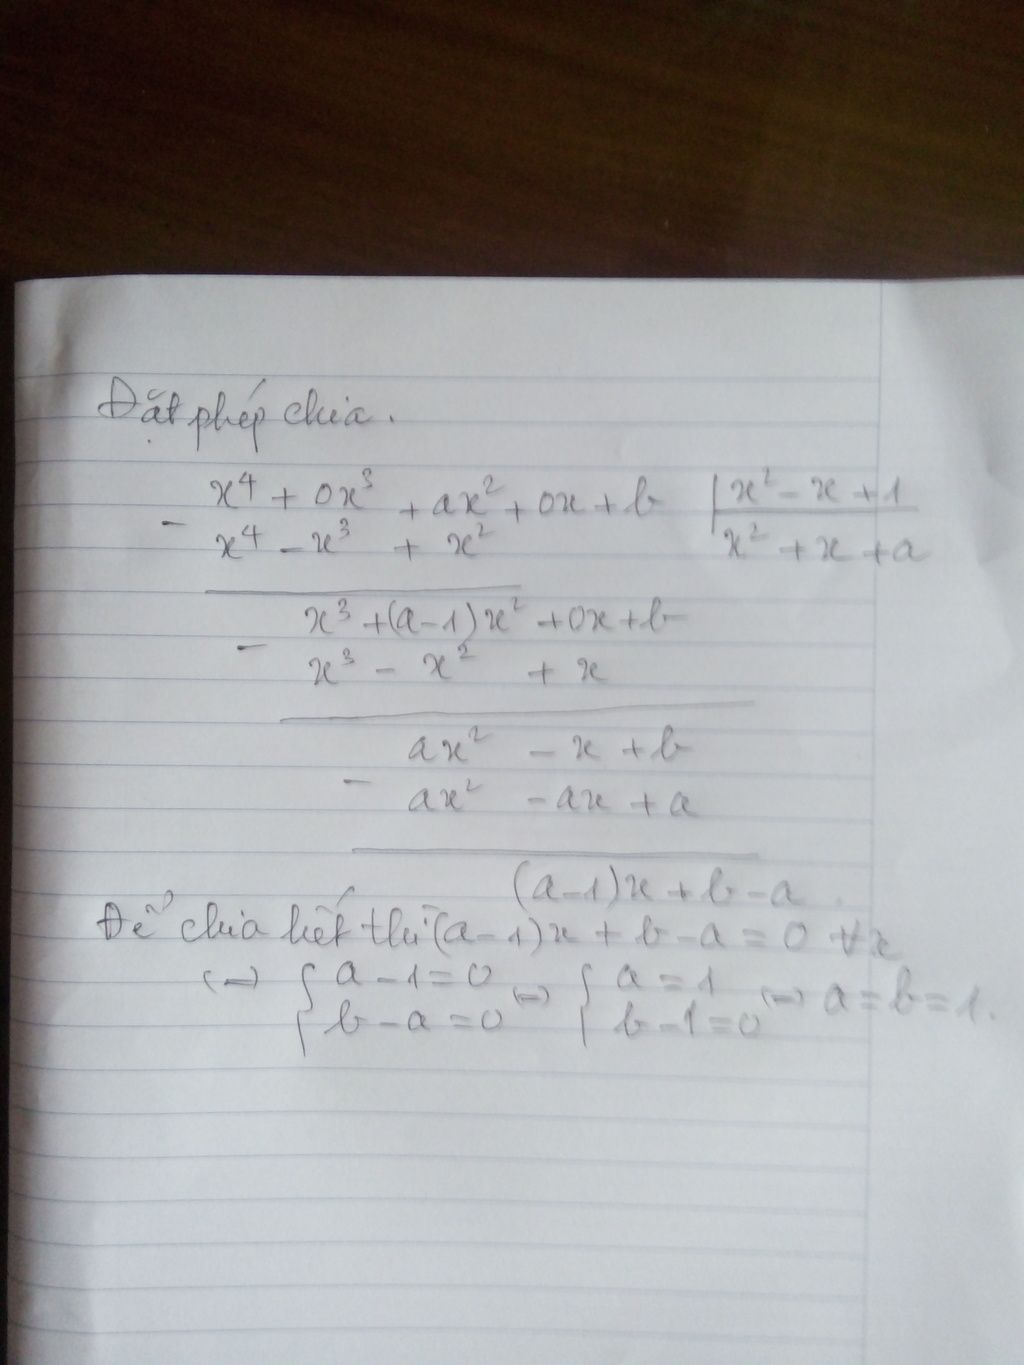 Đặt phép chia.
x⁴ + 0x³ + ax² + 0x + b | x² - x + 1
- x⁴ - x³ + x² | x² + x + a
x³ + (a-1)x² + 0x + b
- x³ - x² + x
ax² - x + b
- ax² - ax + a
(a-1)x + b - a.
Để chia hết thì (a-1)x + b - a = 0 ∀x
(=) { a - 1 = 0 (=) { a = 1 (=) a = b = 1.
{ b - a = 0 { b - 1 = 0